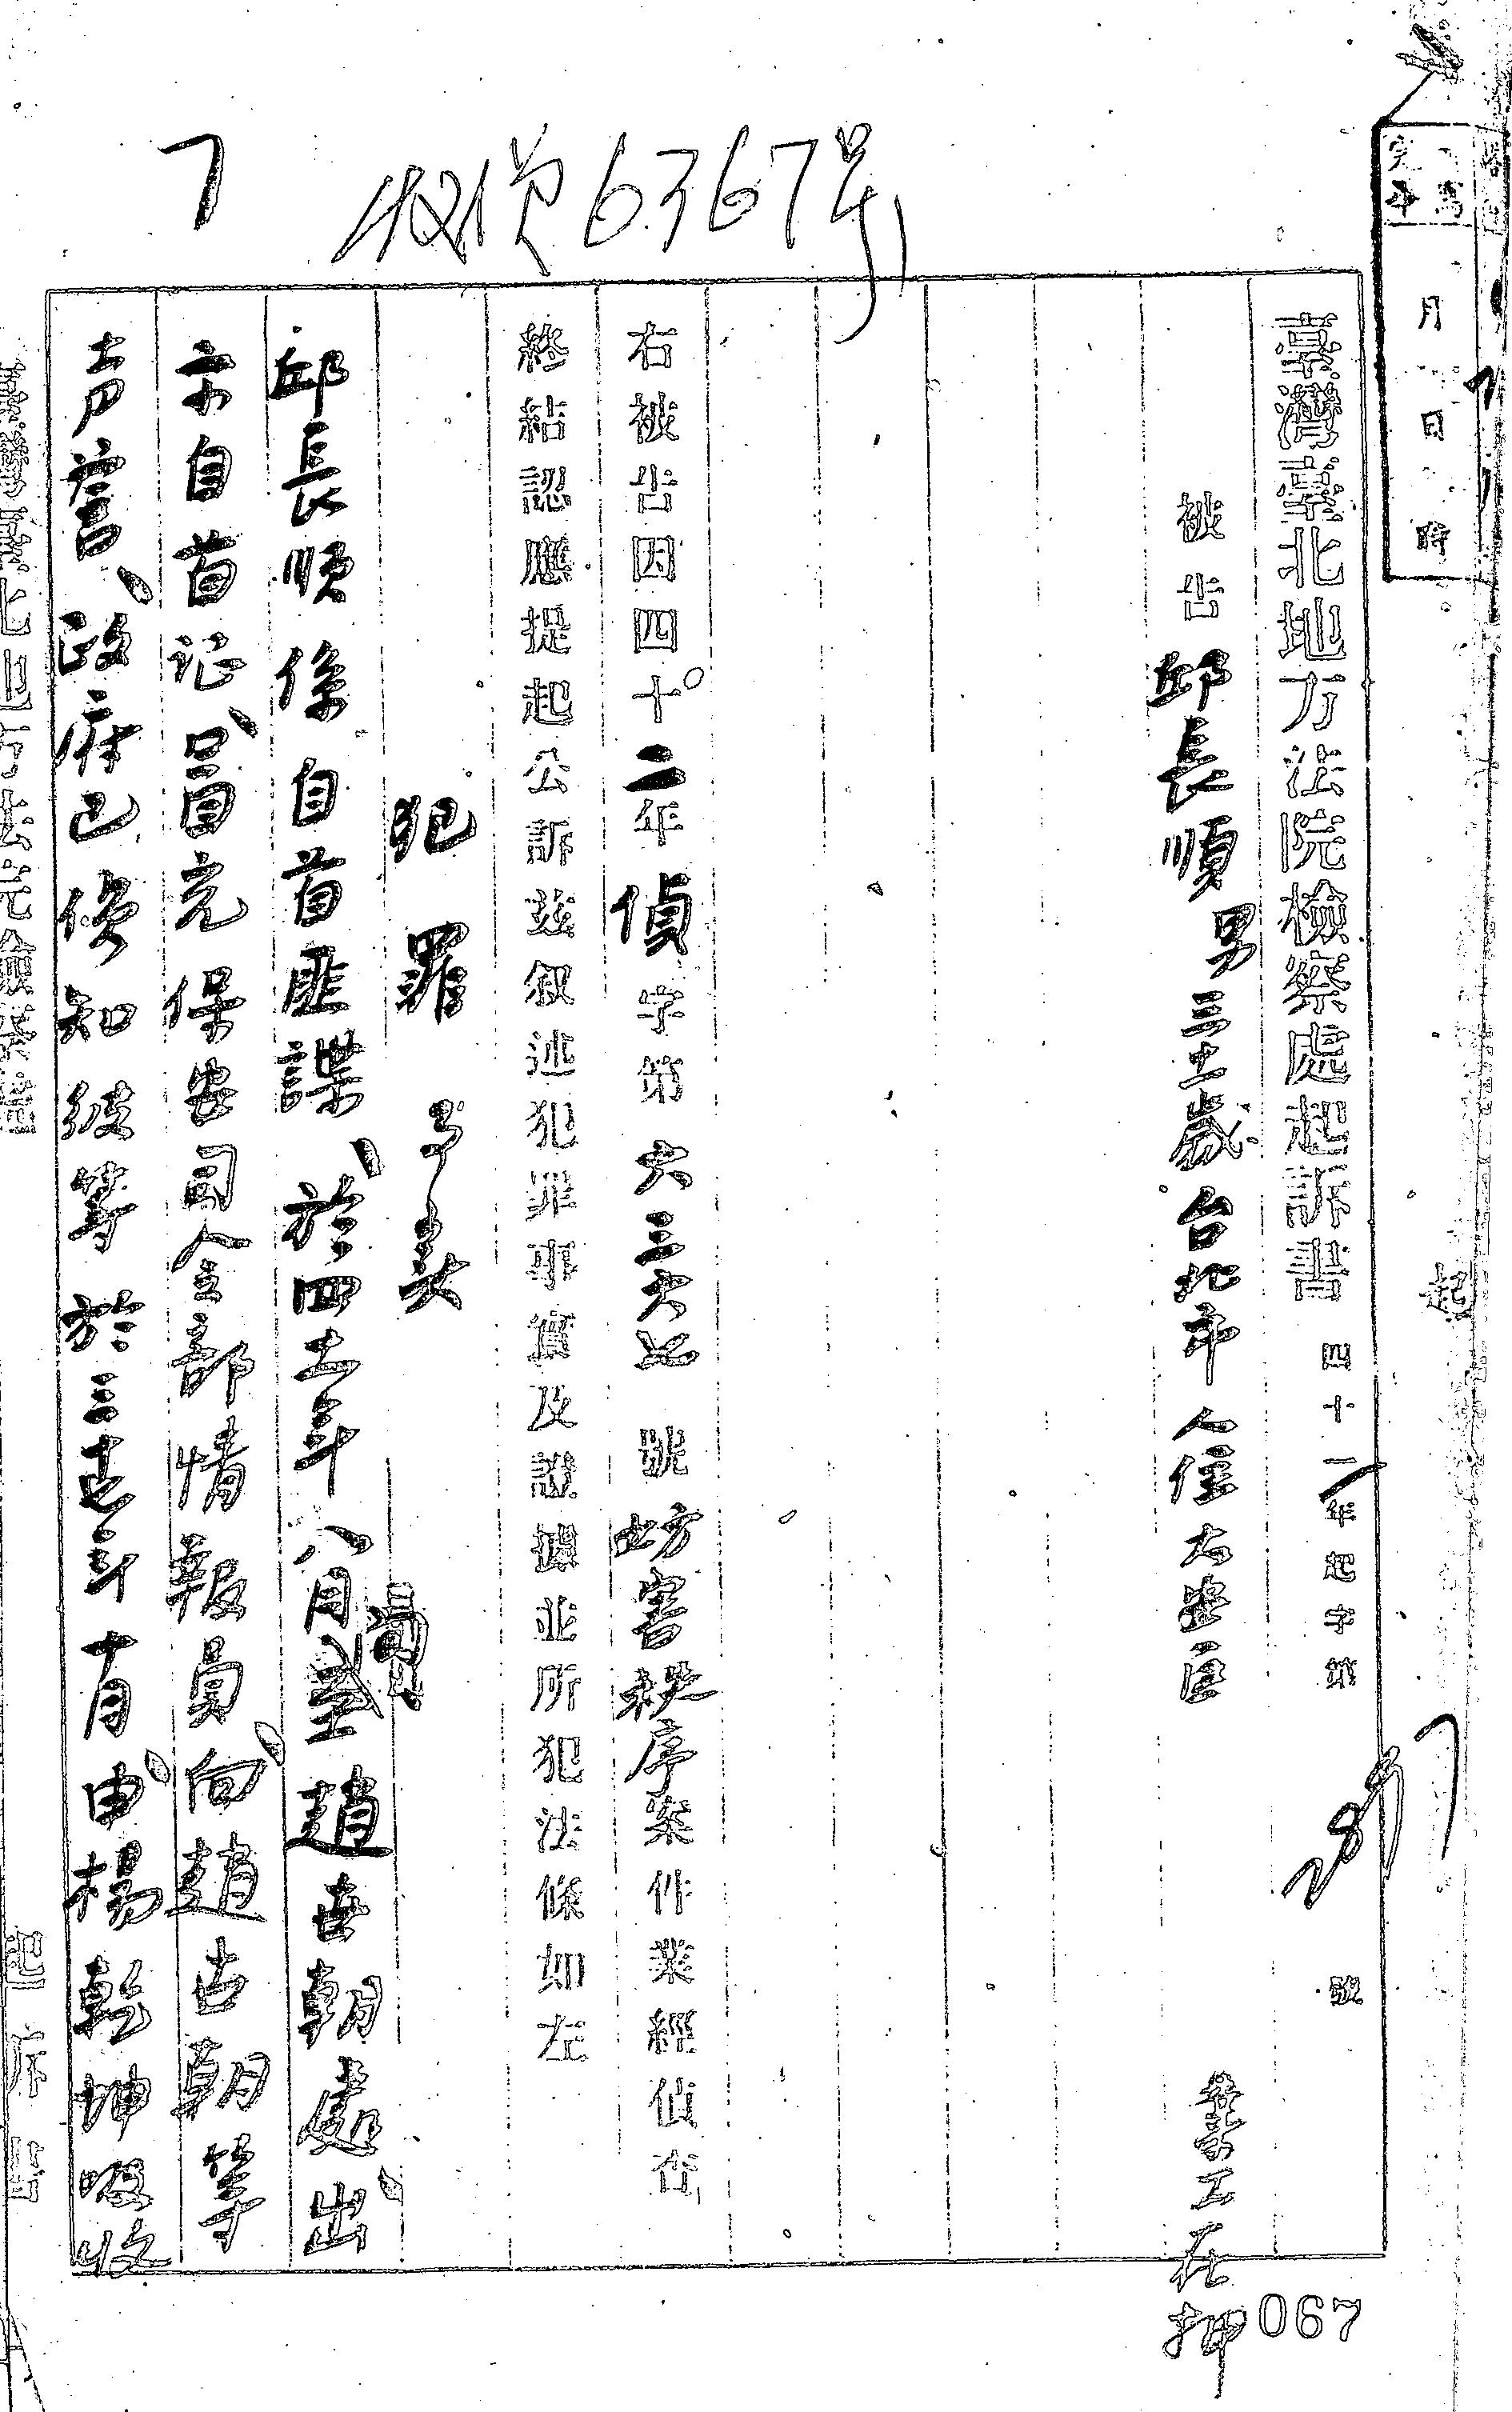 7 收偵6367号
月 日 時
起
臺灣臺北地方法院檢察處起訴書 四十一年起字第 號
被告 邱長順 男 三十二歲 台北市人住大安區 業工在押
右被告因四十二年偵字第六三六七號妨害秩序案件業經偵查
終結認應提起公訴茲叙述犯罪事實及證據並所犯法條如左
犯罪事實
邱長順係自首匪諜、於四十一年八月間至趙古朝處出
示自首証、冒充保安司令部情報員、向趙古朝等
声言、政府已偵知彼等於三十七年十月、由楊乾坤吸收
臺灣臺北地方法院檢察處 起訴書
067